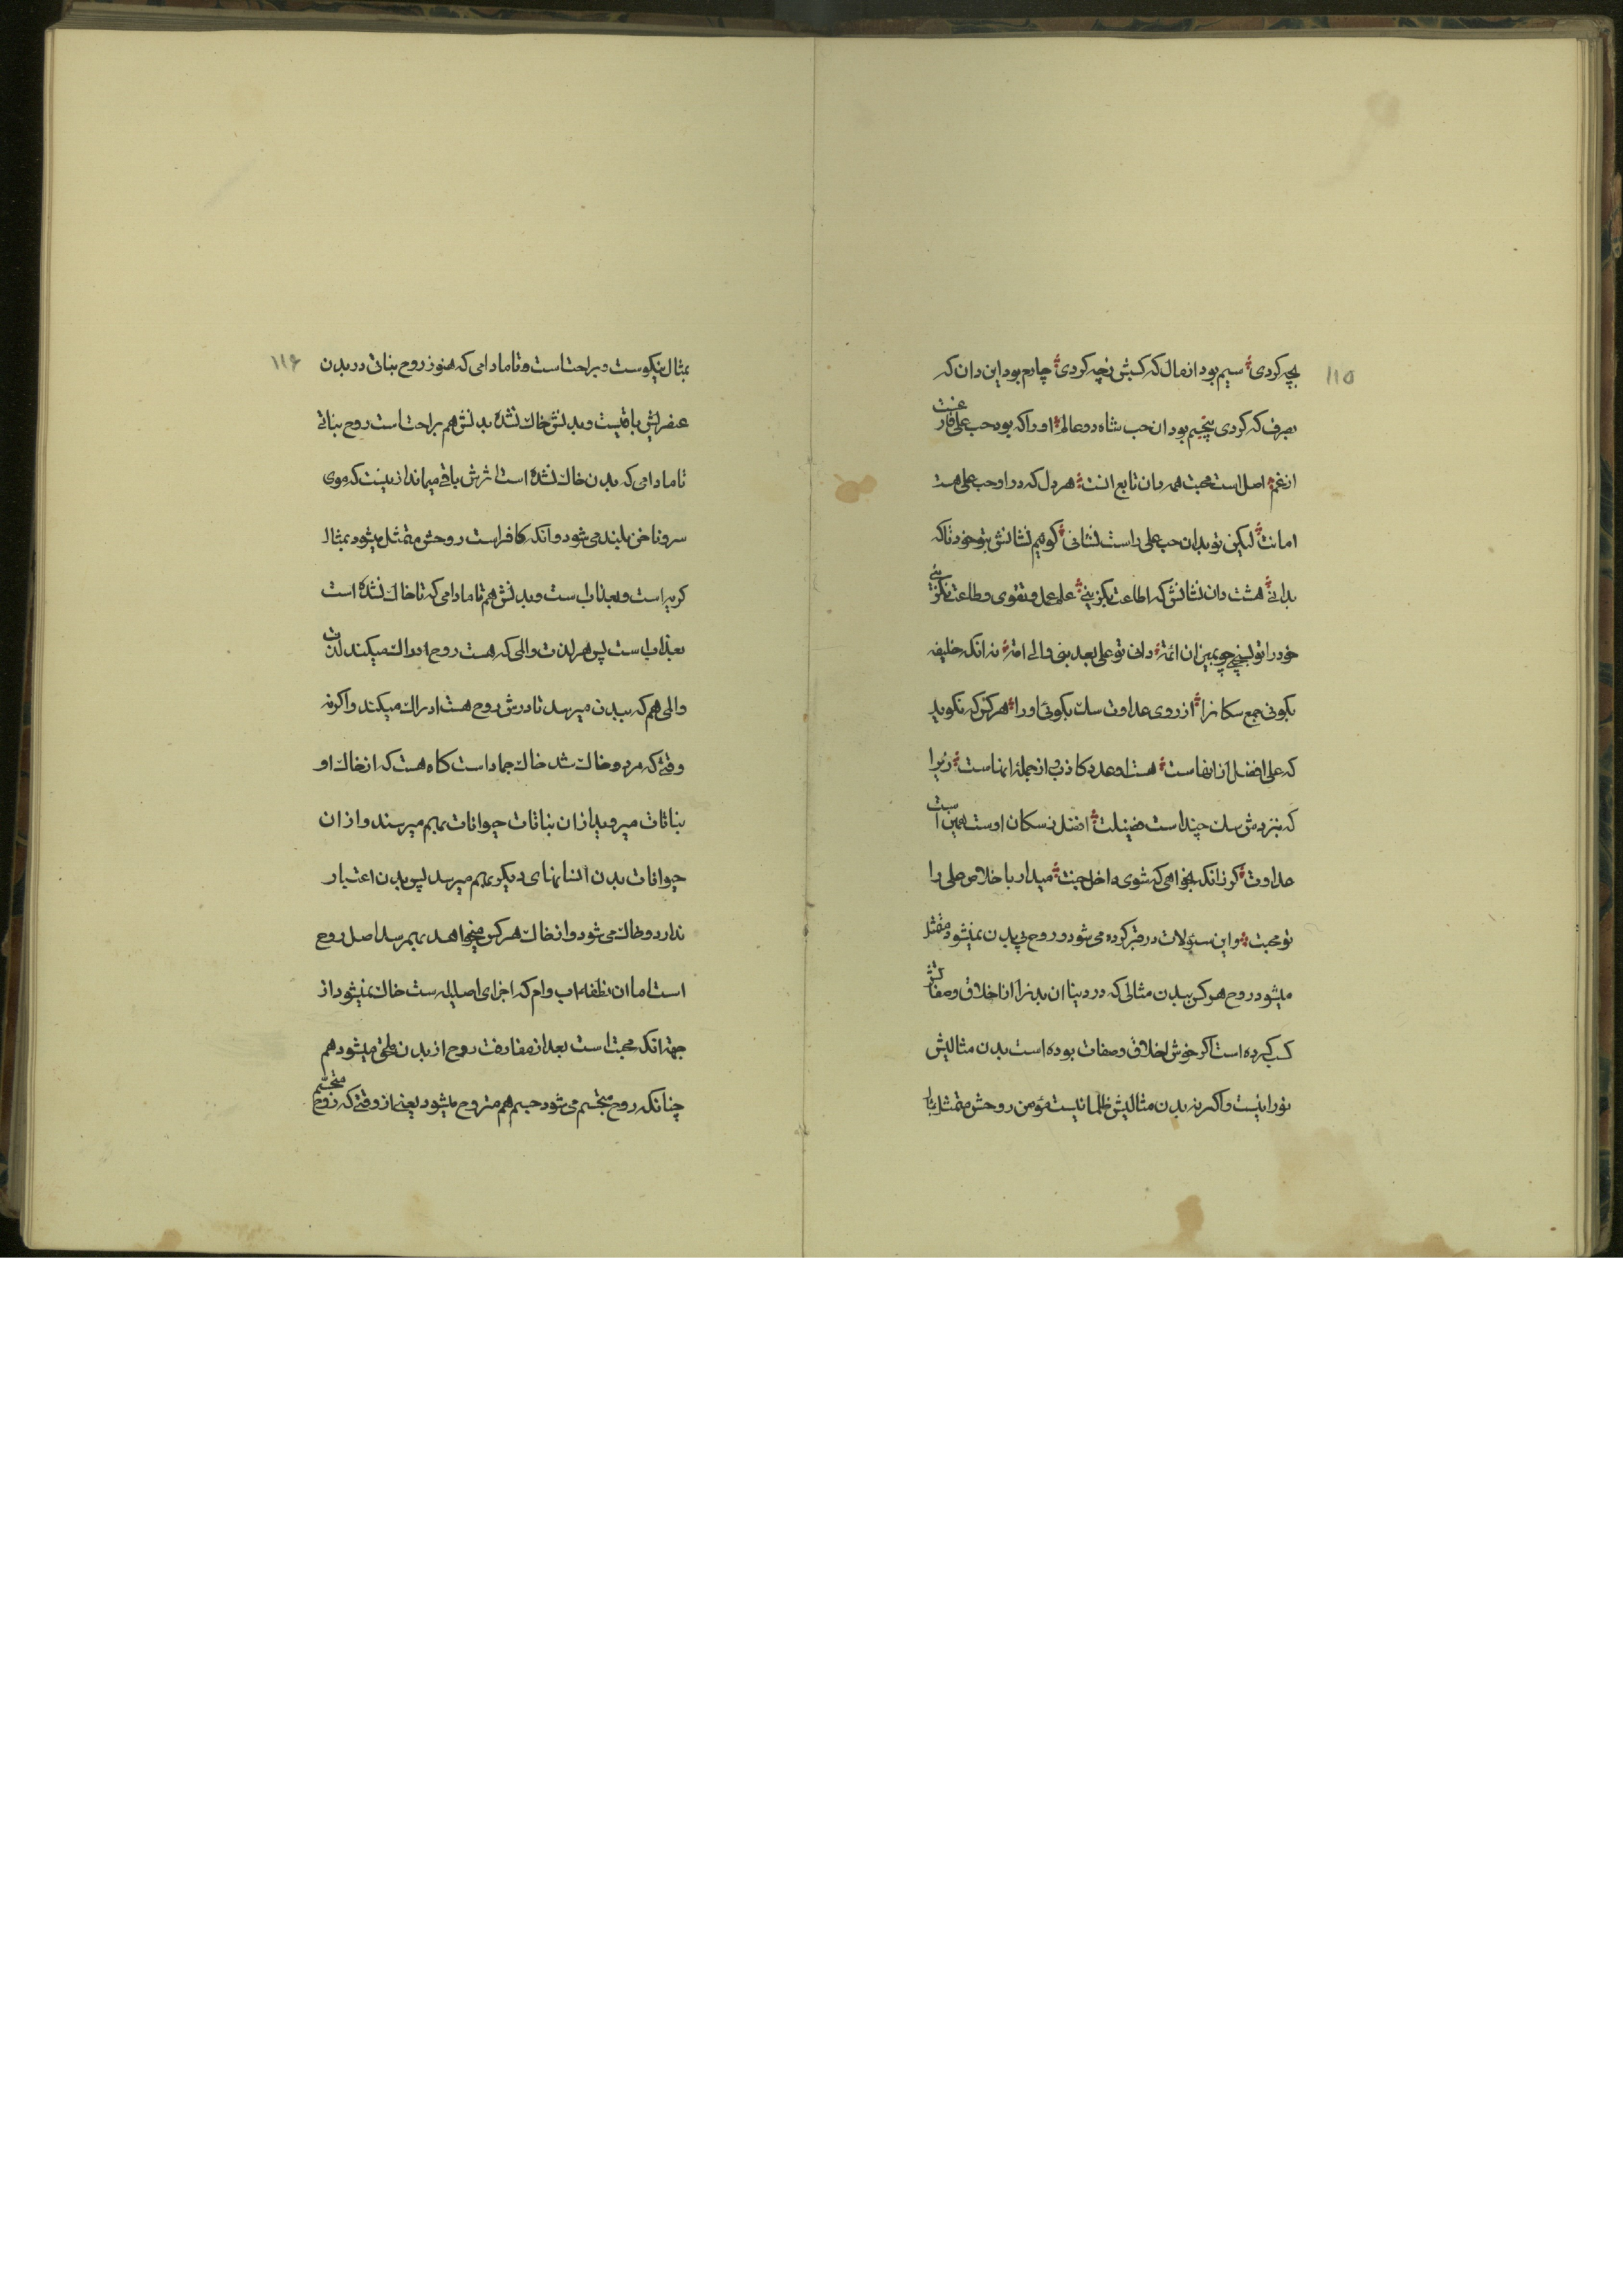 ۱۱۵
بچه کردی سیم بود از مال که کسبش زچه کردی چارم بود این دان که
بصرف که کردی پنجم بود ان حب شاه دو عالم او را که بود حب علی فارغست
از غم اصل است محبت همه دان تابع انت هر دل که در او حب علی هست
امانت لیکن تو بدان حب علی راست نشانی گویم نشانش بتو خود تا که
بدانی هشت دان نشانش که اطاعت بگزینی علم و عمل و تقوی و طاعت بگزینی
خود را تو بسنجی چو بمیزان ائمة دانی تو علی بعد نبی والی امة نه انکه خلیفه
بگوئی جمع سکانرا از روی عداوت سک بگوئی او را هر کس که نگوید
که علی افضل از انهاست هست او عدد کاذب از جمله انهاست زیرا
که بنزدش سک چند است فضیلت افضل ز سکان اوست همین است
عداوت گر زانکه بخواهی که شوی داخل جنت میدار باخلاص علی را
تو محبت و این سئولات در قبر کرده می شود و روح بی بدن نمیشود متمثل
میشود روح هر کس ببدن مثالی که در دنیا ان بدنرا از اخلاق و صفاتش
کسب کرده است اکر خوش اخلاق و صفات بوده است بدن مثالیش
نورانیست و اکر نه بدن مثالیش ظلمانیست مؤمن روحش متمثل
۱۱۶
بمثال نیکوست و براحت است و تا مادامی که هنوز روح نباتی در بدن
عنصرایش باقیست و بدنش خاک نشده بدنش هم براحت است روح نباتی
تا مادامی که بدن خاک نشده است اثرش باقی میماند از نیست که موی
سر و ناخن بلند می شود و انکه کافر است روحش متمثل میشود بمثال
کریه است و بعذاب است و بدنش هم تا مادامی که تا خاک نشده است
بعذاب است پس هر لذت والمی که هست روح ادراک میکند لذت
والمی هم که ببدن میرسد تا درش روح هست ادراک میکند و اکرنه
وقتی که مرد و خاک شد خاک جماد است کاه هست که از خاک او
نباتات میروید از ان نباتات حیوانات بهم میرسند و از ان
حیوانات بدن انسانهای دیگر بهم میرسد پس بدن اعتبار
ندارد و خاک می شود و از خاک هر کس میخواهد بهم رسد اصل روح
است اما ان نطفه اب وام که اجزای اصلیله ست خاک نمیشود از
جهة انکه محبت است بعد از مفارقت روح از بدن ملحق میشود هم
چنانکه روح مجسم می شود جسم هم متروح میشود یعنی از وقتی که روح مجسم